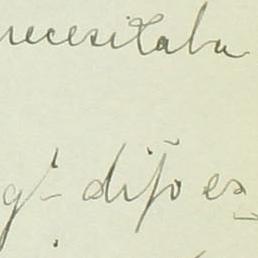 necesitaba
qe dijo es